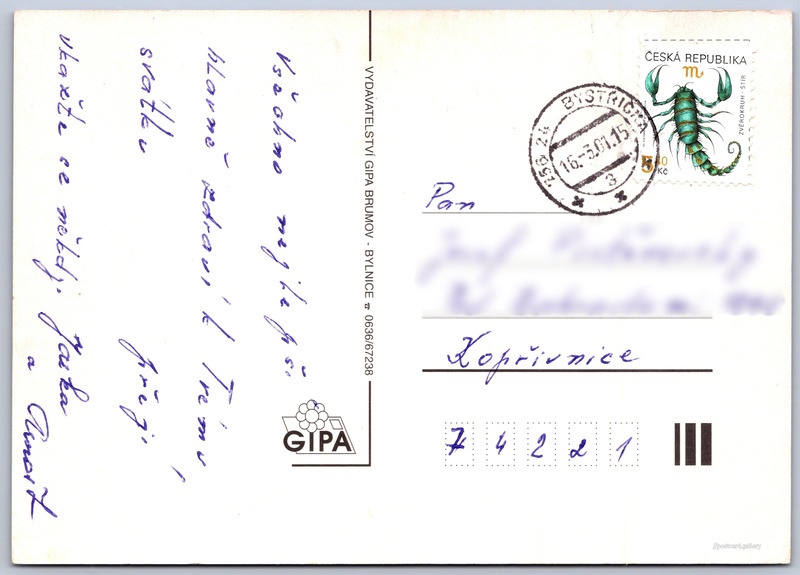 Všechno nejlepší
hlavně zdraví k Tvému
svátku přejí
ukažte se někdy. Jarka
a
VYDAVATELSTVÍ GIPA BRUMOV - BYLNICE ☎ 0636/67238
GIPA
ČESKÁ REPUBLIKA
ZVĚROKRUH - ŠTÍR
5,40
Kč
756 24 BYSTŘIČKA
16.-3.01.15
3
Pan
Kopřivnice
74221
//postcard.gallery